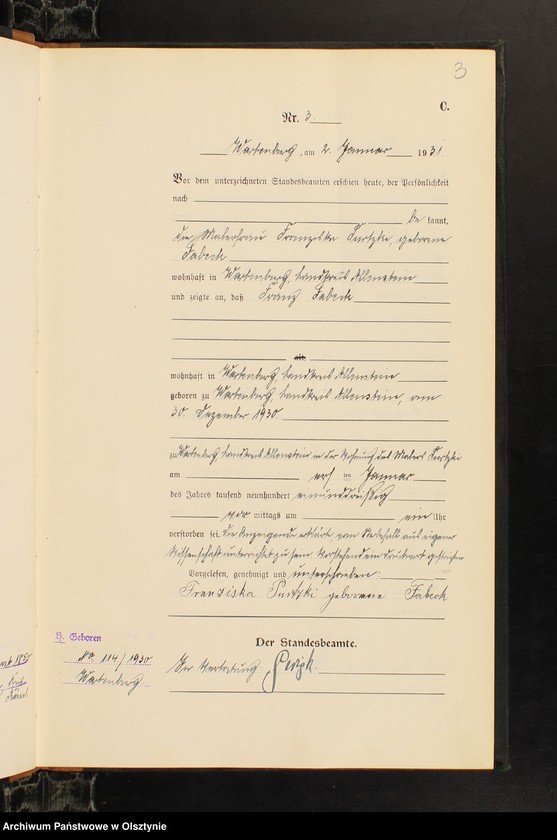 3
C.
Nr. 3
Wartenberg, am 2. Januar 1931
Vor dem unterzeichneten Standesbeamten erschien heute, der Persönlichkeit
nach
be kannt,
die Malerfrau Franziska geborene
Fabeck
wohnhaft in Wartenberg, Landkreis Allenstein
und zeigte an, daß Franz Fabeck
alt
wohnhaft in Wartenberg, Landkreis Allenstein
geboren zu Wartenberg, Landkreis Allenstein, am
30. Dezember 1930
zu Wartenberg Landkreis Allenstein in der Wohnung des Malers
am ersten Januar
des Jahres tausend neunhundert einunddreißig
vor mittags um ein Uhr
verstorben sei. Die Anzeigende erklärte vom Sterbefall aus eigener
Wissenschaft unterrichtet zu sein. Vorstehend ein Druckwort gestrichen
Vorgelesen, genehmigt und unterschrieben:
Franziska geborene Fabeck
Der Standesbeamte.
In Vertretung:
H. Geboren
No. 114/1930
Wartenberg
Archiwum Państwowe w Olsztynie